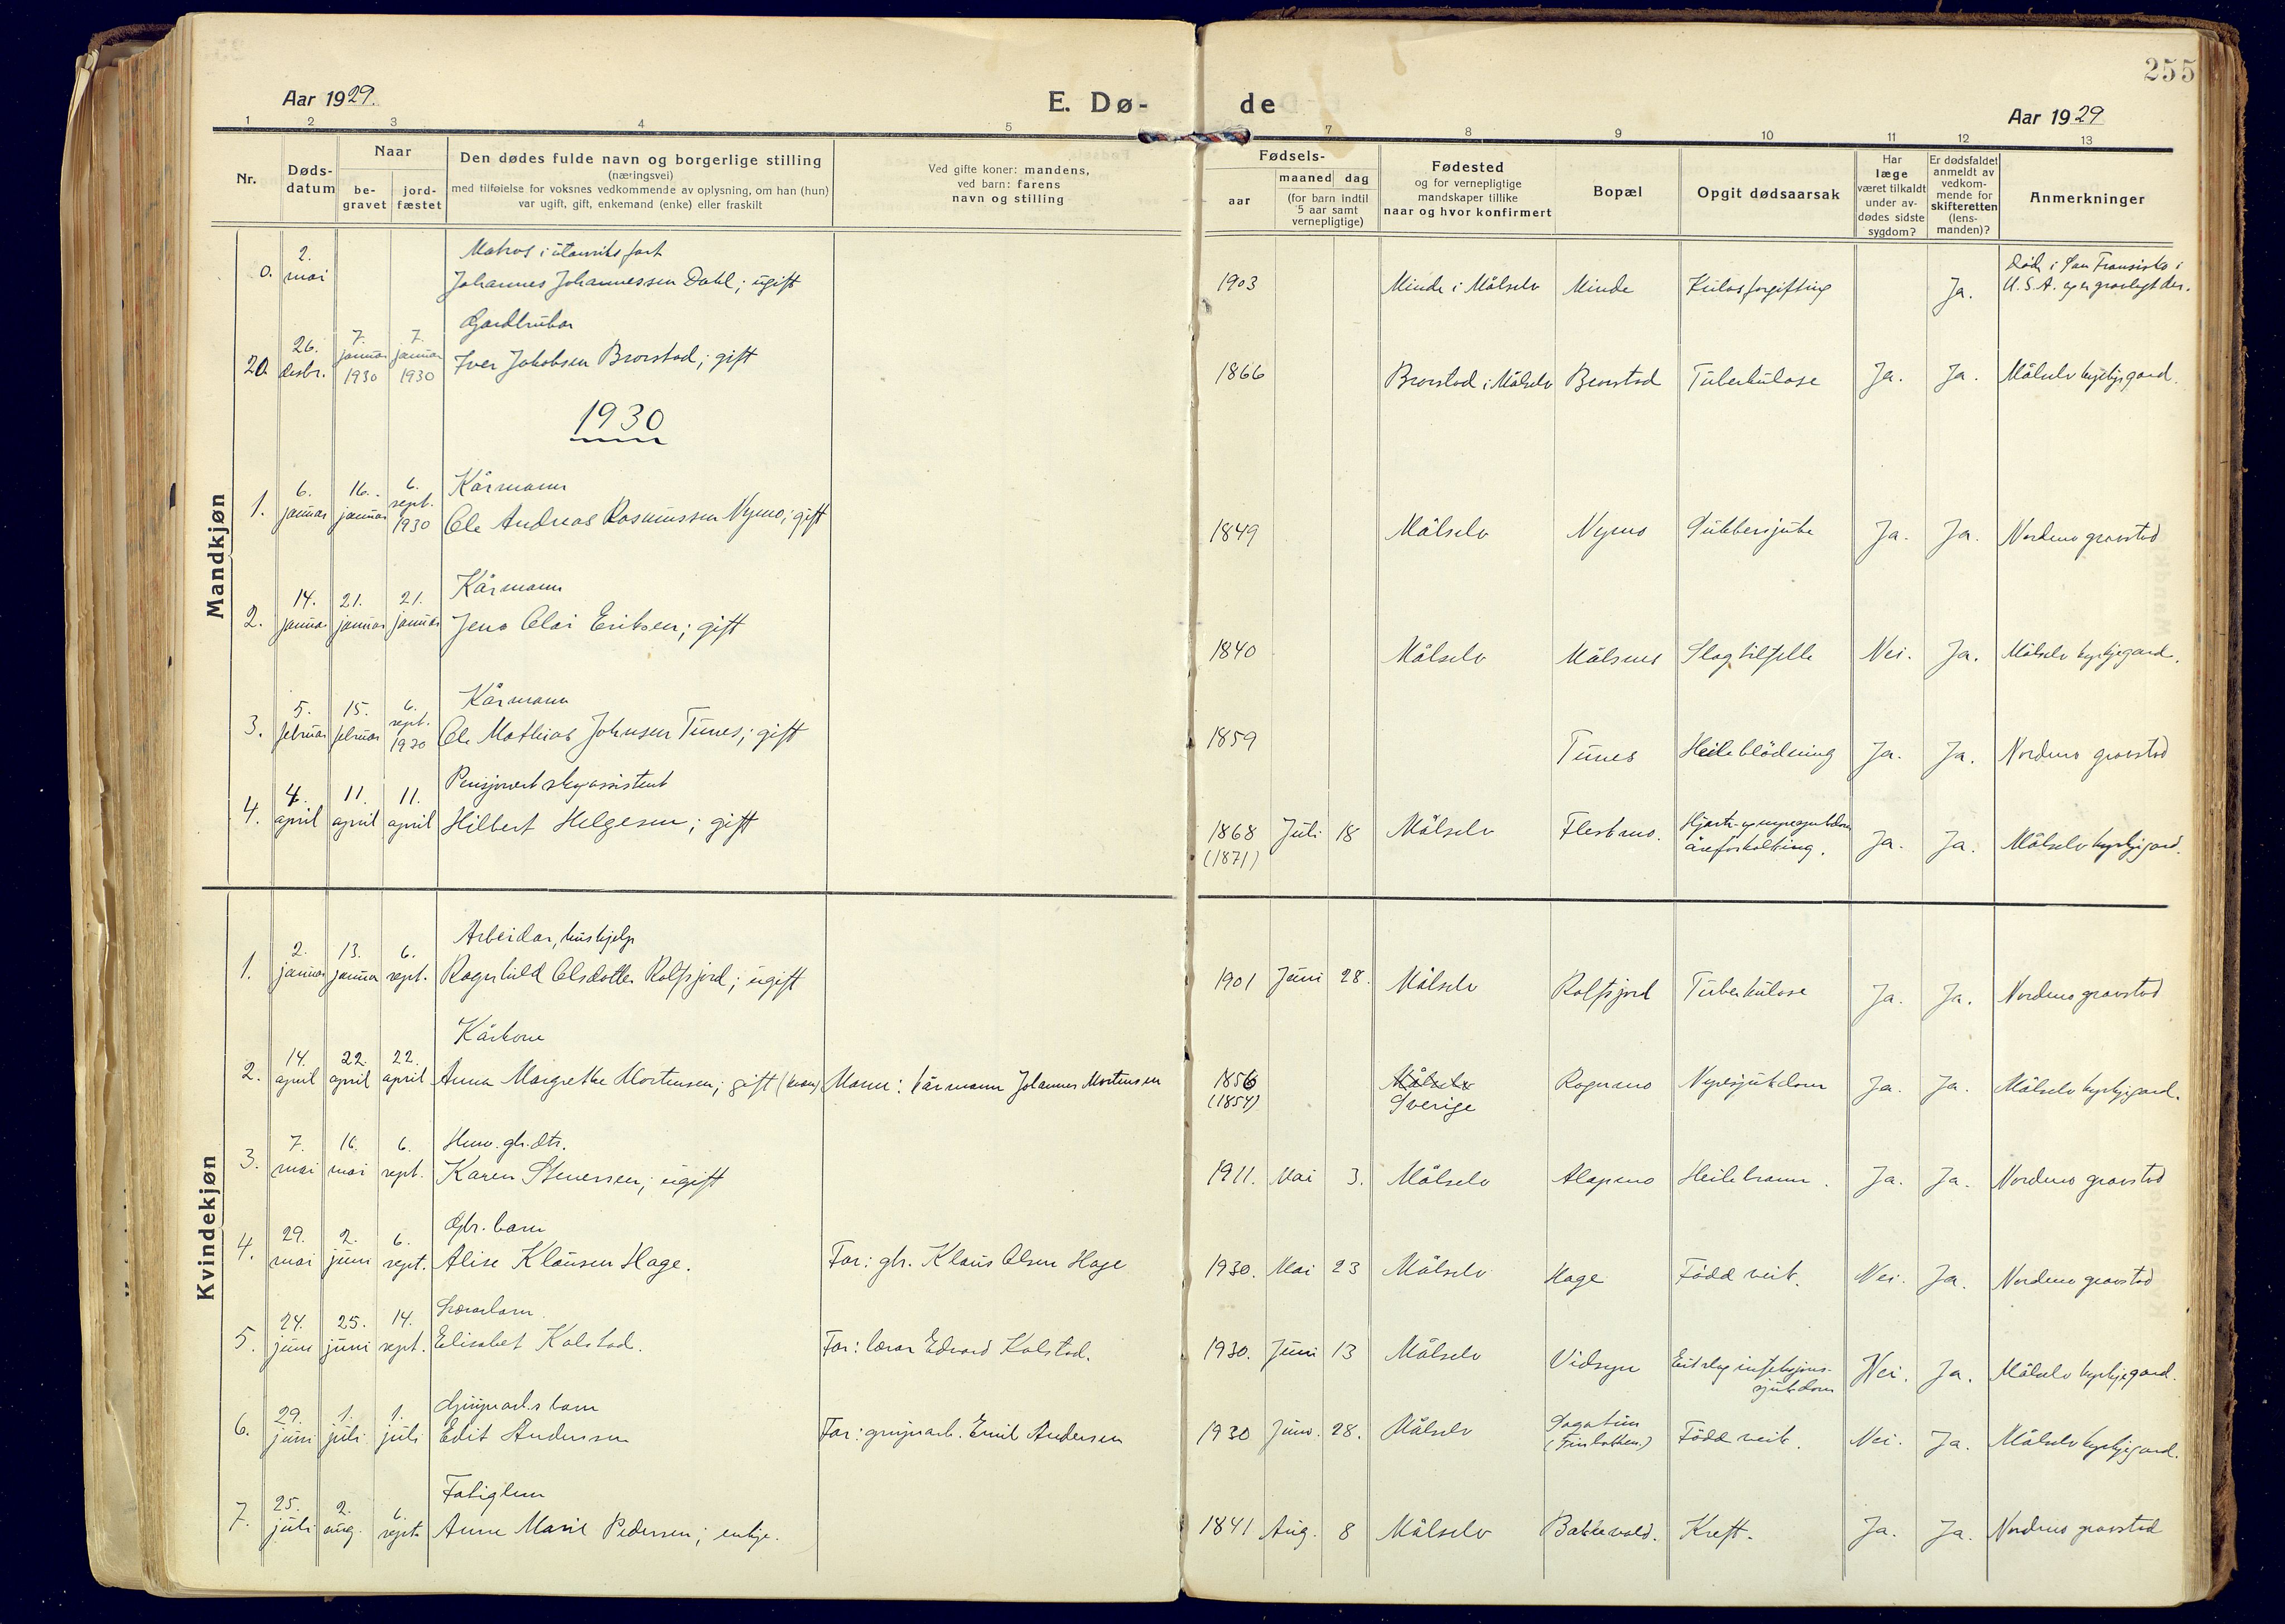 255
Aar 1929.
E. Dø-
de
Aar 1929
1 2 3 4 5 7 8 9 10 11 12 13
Nr.
Døds-
datum
Naar
be-
gravet
jord-
fæstet
Den dødes fulde navn og borgerlige stilling
(næringsvei)
med tilføielse for voksnes vedkommende av oplysning, om han (hun)
var ugift, gift, enkemand (enke) eller fraskilt
Ved gifte koner: mandens,
ved barn: farens
navn og stilling
Fødsels-
aar
maaned dag
(for barn indtil
5 aar samt
vernepligtige)
Fødested
og for vernepligtige
mandskaper tillike
naar og hvor konfirmert
Bopæl
Opgit dødsaarsak
Har
læge
været tilkaldt
under av-
dødes sidste
sygdom?
Er dødsfaldet
anmeldt av
vedkom-
mende for
skifteretten
(lens-
manden)?
Anmerkninger
Mandkjøn
0. 2. mai
Matros i utanriks fart
Johannes Johannessen Dahl; ugift
1903 Minde i Målselv Minde Kulosforgifting Ja.
Död i San Fransisko i
U.S.A. og er gravlagt der.
20. 26. desbr. 7. januar 1930 7. januar 1930
Gardbrukar
Iver Jakobsen Brorstad; gift
1866 Brorstad i Målselv Brorstad Tuberkulose Ja. Ja. Målselv kyrkjegard.
1930
1. 6. januar 16. januar 6. sept. 1930
Kårmann
Ole Andreas Rasmussen Nymo; gift
1849 Målselv Nymo Ja. Ja. Nordmo gravstad
2. 14. januar 21. januar 21. januar
Kårmann
Jens Olai Eriksen; gift
1840 Målselv Målsnes Slagtilfelle Nei. Ja. Målselv kyrkjegard.
3. 5. februar 15. februar 6. sept. 1930
Kårmann
Ole Mathias Johnsen Tunes; gift
1859 Tunes Heileblödning Ja. Ja. Nordmo gravstad
4. 4. april 11. april 11. april
Pensjonert skogassistent
Hilbert Helgesen; gift
1868 Juli 18 Målselv Flestmo. Hjarte- og nyresjukdom Ja. Ja. Målselv kyrkjegard.
(1871) åreforkalking.
Kvindekjøn
1. 2. januar 13. januar 6. sept.
Arbeidar, hushjelp
Ragnhild Olsdotter Rolfsjord; ugift
1901 Juni 28. Målselv Rolfsjord Tuberkulose Ja. Ja. Nordmo gravstad
2. 14. april 22. april 22. april
Kårkone
Anna Margrethe Mortensen; gift (kone) Mann: kårmann Johannes Mortensen
1856 Målselv Rognmo Nyresjukdom Ja. Ja. Målselv kyrkjegard.
(1854) Sverige
3. 7. mai 16. mai 6. sept.
Huv. gb. dtr.
Karen Stenersen; ugift
1911. Mai 3. Målselv Alapmo Ja. Ja. Nordmo gravstad
4. 29. mai 2. juni 6. sept.
Gbr. barn
Alise Klausen Hage. Far: gbr. Klaus Olsen Hage
1930. Mai 23 Målselv Hage Född veik. Nei. Ja. Nordmo gravstad
5. 24. juni 25. juni 14. sept.
Lærarbarn
Elisabet Kolstad. Far: lærar Edvard Kolstad.
1930. Juni 13 Målselv Vidsyn Eitslag infeksjons- Nei. Ja. Målselv kyrkjegard.
sjukdom
6. 29. juni 1. juli 1. juli
Gruvarb.s barn
Edit Andersen Far: gruvearb. Emil Andersen
1930 Juni. 28. Målselv Sagatun Född veik. Nei. Ja. Målselv kyrkjegard.
(Finbakken.)
7. 25. juli 2. aug. 6. sept.
Fatiglem
Anne Marie Pedersen; enkje.
1841 Aug. 8 Målselv Bakkevold. Kreft. Ja. Ja. Nordmo gravstad